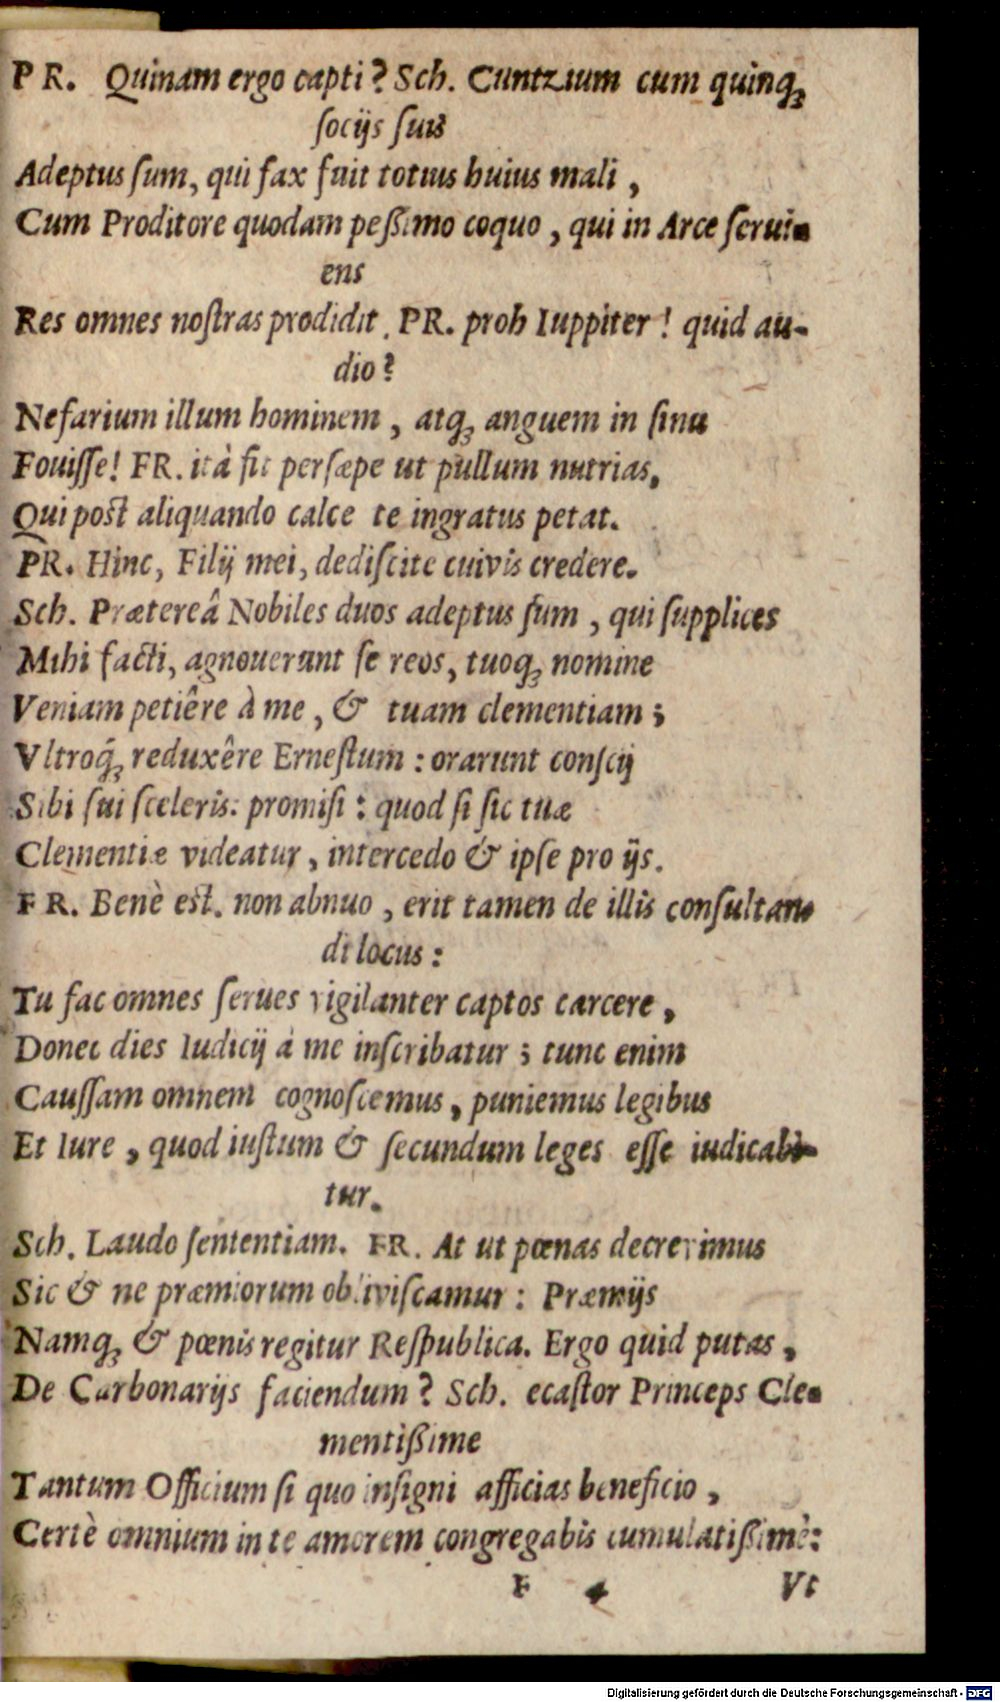 PR. Quinam ergo capti? Sch. Cuntzium cum quinq́;
ſocijs ſuis
Adeptus ſum, qui fax fuit totius huius mali,
Cum Proditore quodam peßimo coquo, qui in Arce ſerui-
ens
Res omnes noſtras prodidit. PR. proh Iuppiter! quid au-
dio?
Nefarium illum hominem, atq; anguem in ſinu
Fouiſſe! FR. ità fit perſæpe ut pullum nutrias,
Qui poſt aliquando calce te ingratus petat.
PR. Hinc, Filij mei, dediſcite cuivis credere.
Sch. Prætereâ Nobiles duos adeptus ſum, qui ſupplices
Mihi facti, agnouerunt ſe reos, tuoq; nomine
Veniam petiêre à me, & tuam clementiam;
Vltroq́; reduxêre Erneſtum: orarunt conſcij
Sibi ſui ſceleris: promiſi: quod ſi ſic tuæ
Clementiæ videatur, intercedo & ipſe pro ijs.
FR. Benè eſt. non abnuo, erit tamen de illis conſultan-
di locus:
Tu fac omnes ſerues vigilanter captos carcere,
Donec dies Iudicij à me inſcribatur; tunc enim
Cauſſam omnem cognoſcemus, puniemus legibus
Et Iure, quod iuſtum & ſecundum leges eſſe iudicabi-
tur.
Sch. Laudo ſententiam. FR. At ut pœnas decrevimus
Sic & ne præmiorum obliviſcamur: Præmijs
Namq; & pœnis regitur Reſpublica. Ergo quid putas,
De Carbonarijs faciendum? Sch. ecaſtor Princeps Cle-
mentißime
Tantum Officium ſi quo inſigni afficias beneficio,
Certè omnium in te amorem congregabis cumulatißimè:
F 4 Vt
Digitalisierung gefördert durch die Deutsche Forschungsgemeinschaft - DFG